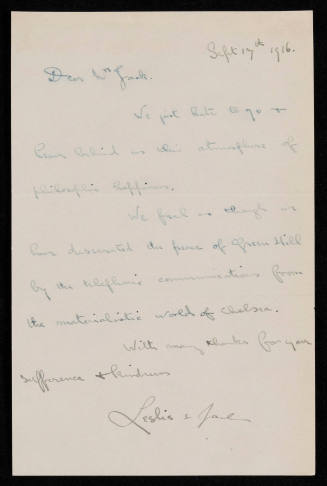 Sept 17th 1916.
Dear Mrs Jack.
We just hate to go &
leave behind us this atmosphere of
philosophic happiness.
We feel as though we
have desecrated the peace of Green Hill
by the telephonic communications from
the materialistic world of Chelsea.
With many thanks for your
sufference & kindness
Leslie &